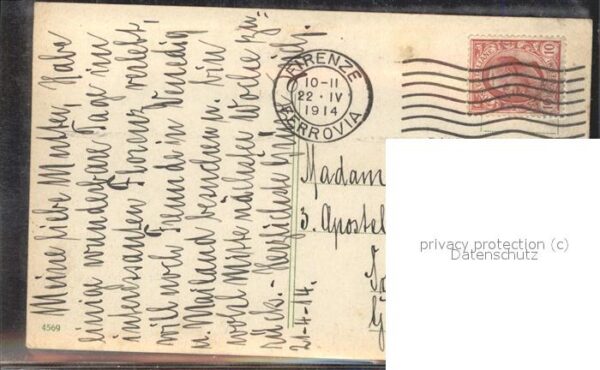 Meine liebe Mutter, Habe
einige wunderbare Tage im
interessanten Florenz verlebt,
will noch Freunde in Venedig
u. Mailand besuchen u. bin
wohl Mitte nächster Woche zu-
rück. - Herzlichste
21-4-14.
FIRENZE
10-11
22·IV
1914
FERROVIA
10
Madam
3. Apostel
privacy protection (c)
Datenschutz
4569